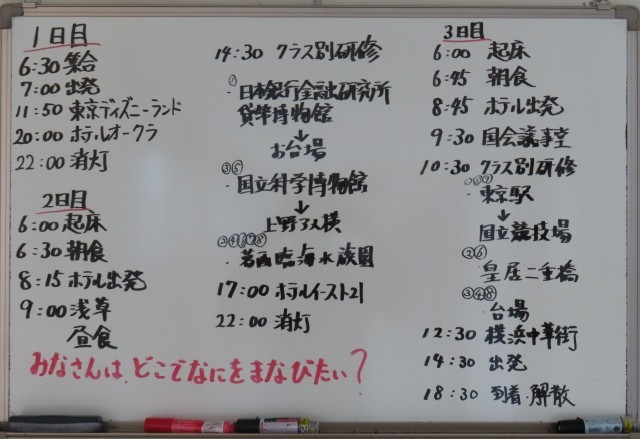 1日目
6:30 集合
7:00 出発
11:50 東京ディズニーランド
20:00 ホテルオークラ
22:00 消灯
2日目
6:00 起床
6:30 朝食
8:15 ホテル出発
9:00 浅草
昼食
14:30 クラス別研修
①
・日本銀行金融研究所
貨幣博物館
↓
お台場
③⑤
・国立科学博物館
↓
上野アメ横
②④⑥⑦⑧
・葛西臨海水族園
17:00 ホテルイースト21
22:00 消灯
3日目
6:00 起床
6:45 朝食
8:45 ホテル出発
9:30 国会議事堂
10:30 クラス別研修
・東京駅
↓
国立競技場
②⑥
・皇居二重橋
③④⑧
・台場
12:30 横浜中華街
14:30 出発
18:30 到着・解散
みなさんは、どこでなにをまなびたい?